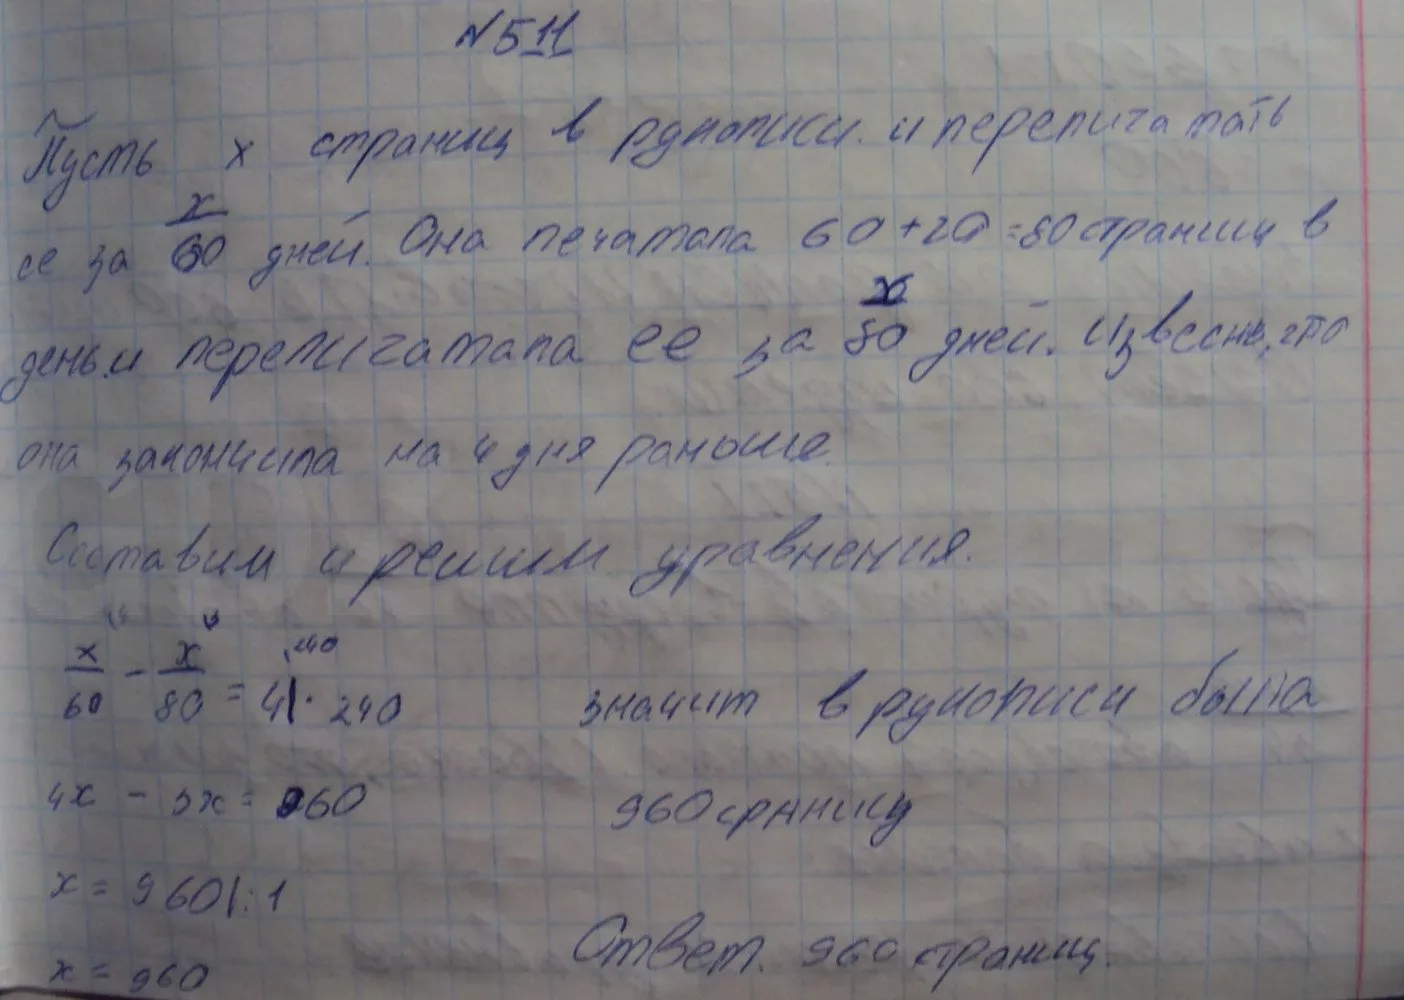 №511
Пусть x страниц в рукописи. и перепичатать
ее за x/60 дней. Она печатала 60+20=80 страниц в
день.и перепичатала ее за x/80 дней. Извесно, что
она закончила на 4 дня раньше.
Составим и решим уравнения.
x/60 - x/80 = 4|· 240
4x - 3x = 960
x = 960|:1
x = 960
значит в рукописи была
960 срнниц
Ответ. 960 страниц.